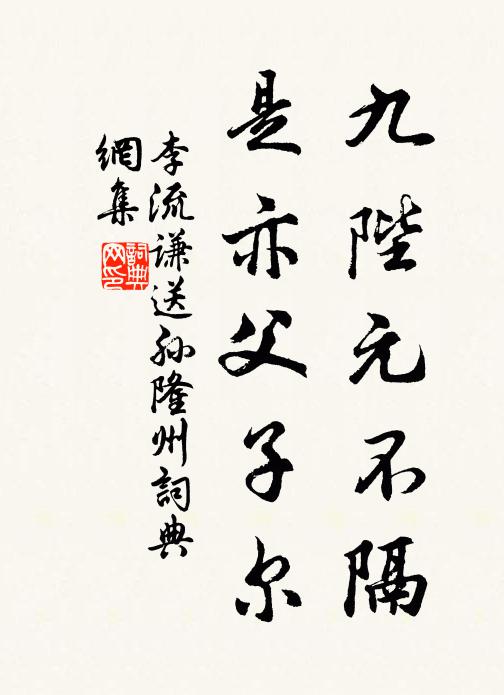 九陛元不隔
是亦父子尔
李流谦送孙隆州詞典
網集
詞典
网印